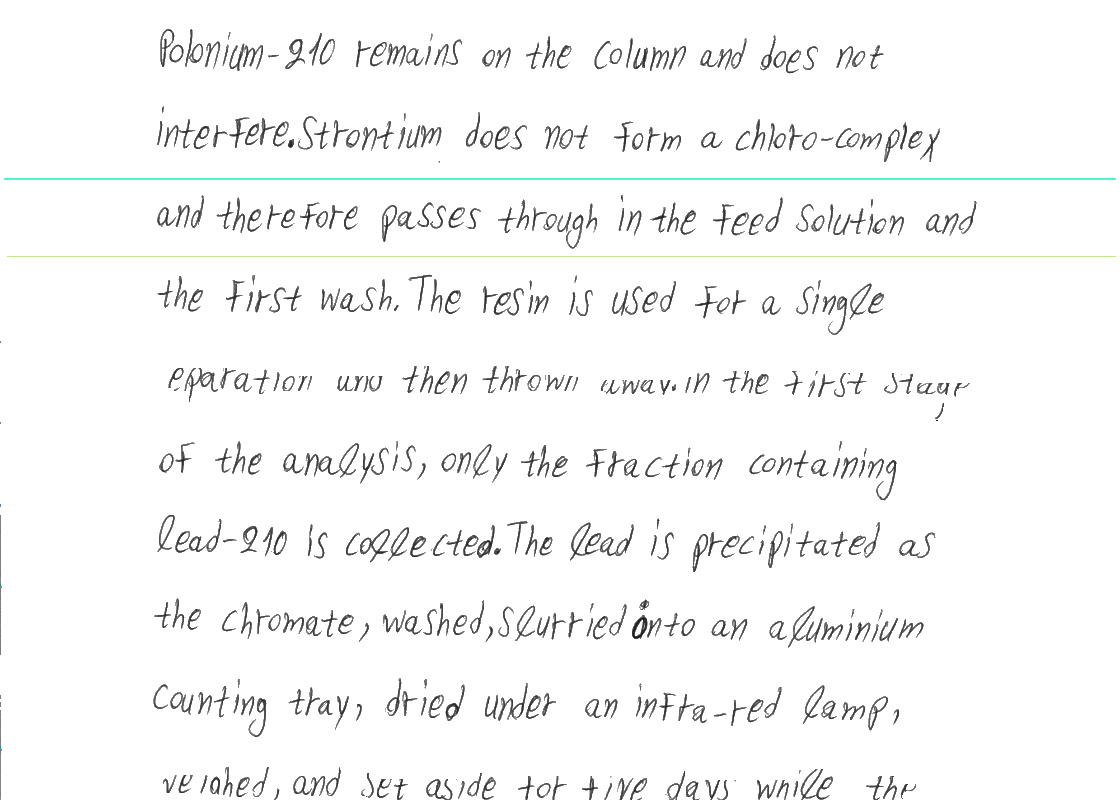 Polonium-210 remains on the column and does not
interfere.Strontium does not form a chloro-complex
and therefore passes through in the feed solution and
the first wash. The resin is used for a single
eparation and then thrown away. in the first stage
of the analysis, only the fraction containing
lead-210 is collected. The lead is precipitated as
the chromate, washed, slurried onto an aluminium
counting tray, dried under an infra-red lamp,
weighed, and set aside for five days while the